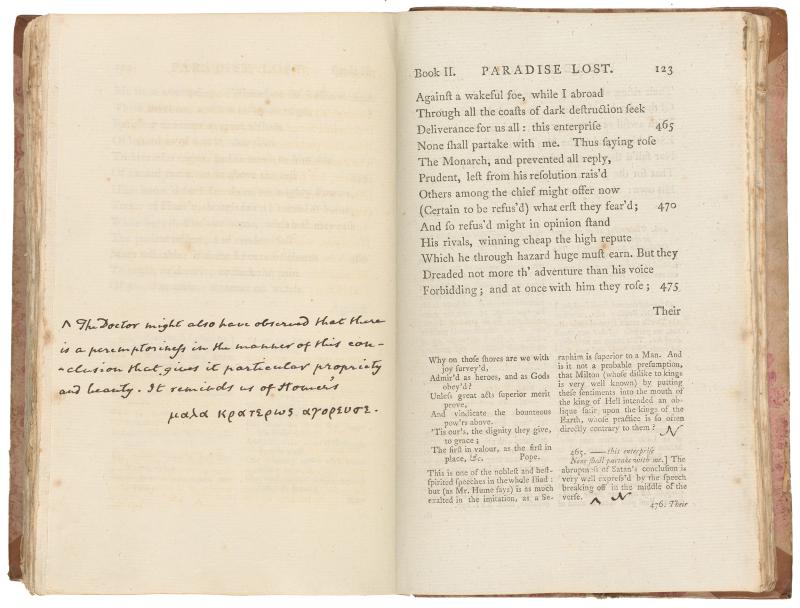 ^ The Doctor might also have observed that there
is a peremptoriness in the manner of this con-
-clusion that gives it particular propriety
and beauty. It reminds us of Homer's
μαλα κρατερως αγορευσε.
Book II. PARADISE LOST. 123
Againſt a wakeful foe, while I abroad
Through all the coaſts of dark deſtruction ſeek
Deliverance for us all : this enterpriſe 465
None ſhall partake with me. Thus ſaying roſe
The Monarch, and prevented all reply,
Prudent, leſt from his reſolution rais'd
Others among the chief might offer now
(Certain to be refus'd) what erſt they fear'd; 470
And ſo refus'd might in opinion ſtand
His rivals, winning cheap the high repute
Which he through hazard huge muſt earn. But they
Dreaded not more th' adventure than his voice
Forbidding; and at once with him they roſe; 475
Their
Why on thoſe ſhores are we with
joy ſurvey'd,
Admir'd as heroes, and as Gods
obey'd?
Unleſs great acts ſuperior merit
prove,
And vindicate the bounteous
pow'rs above.
'Tis our's, the dignity they give,
to grace;
The firſt in valour, as the firſt in
place, &c. Pope.
This is one of the nobleſt and beſt-
ſpirited ſpeeches in the whole Iliad :
but (as Mr. Hume ſays) is as much
exalted in the imitation, as a Se-
raphim is ſuperior to a Man. And
is it not a probable preſumption,
that Milton (whoſe diſlike to kings
is very well known) by putting
theſe ſentiments into the mouth of
the king of Hell intended an ob-
lique ſatir upon the kings of the
Earth, whoſe practice is ſo often
directly contrary to them? N
465. ——this enterpriſe
None ſhall partake with me.] The
abruptneſs of Satan's concluſion is
very well expreſs'd by the ſpeech
breaking off in the middle of the
verſe. ^ N
476. Their